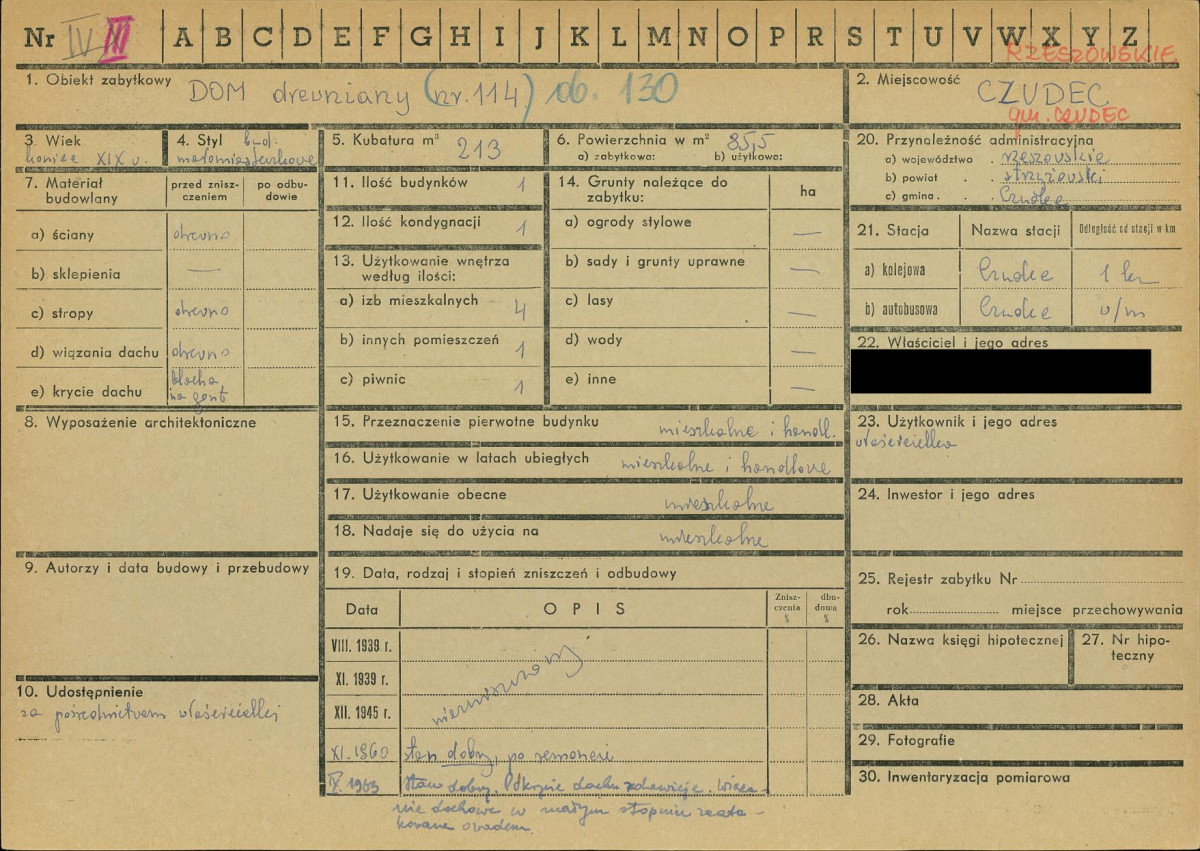 Nr IV III A B C D E F G H I J K L M N O P R S T U V W X Y Z
RZESZOWSKIE
1. Obiekt zabytkowy DOM drewniany (nr. 114) ob. 130
2. Miejscowość CZUDEC
gm. CZUDEC
3. Wiek koniec XIX w.
4. Styl bud. małomiasteczkowe
5. Kubatura m³ 213
6. Powierzchnia w m² 85,5
a) zabytkowa: b) użytkowa:
20. Przynależność administracyjna
a) województwo rzeszowskie
b) powiat strzyżowski
c) gmina Czudec
7. Materiał budowlany
przed zniszczeniem
po odbudowie
a) ściany drewno
b) sklepienia —
c) stropy drewno
d) wiązania dachu drewno
e) krycie dachu blacha na gont
11. Ilość budynków 1
12. Ilość kondygnacji 1
13. Użytkowanie wnętrza
według ilości:
a) izb mieszkalnych 4
b) innych pomieszczeń 1
c) piwnic 1
14. Grunty należące do
zabytku:
ha
a) ogrody stylowe —
b) sady i grunty uprawne —
c) lasy —
d) wody —
e) inne —
21. Stacja Nazwa stacji Odległość od stacji w km
a) kolejowa Czudec 1 km
b) autobusowa Czudec w/m
22. Właściciel i jego adres
8. Wyposażenie architektoniczne
15. Przeznaczenie pierwotne budynku mieszkalne i handl.
16. Użytkowanie w latach ubiegłych mieszkalne i handlowe
17. Użytkowanie obecne mieszkalne
18. Nadaje się do użycia na mieszkalne
23. Użytkownik i jego adres
właścicielka
24. Inwestor i jego adres
9. Autorzy i data budowy i przebudowy
19. Data, rodzaj i stopień zniszczeń i odbudowy
Data OPIS
Znisz-
czenia
%
dbu-
dowa
%
VIII. 1939 r.
XI. 1939 r.
XII. 1945 r.
nienaruszony
XI. 1960 stan dobry, po remoncie
IX. 1963 Stan dobry. Pokrycie dachu rdzewieje. Wiąza-
nie dachowe w małym stopniu zaata-
kowane owadem.
25. Rejestr zabytku Nr
rok miejsce przechowywania
26. Nazwa księgi hipotecznej
27. Nr hipo-
teczny
10. Udostępnienie
za pośrednictwem właścicielki
28. Akta
29. Fotografie
30. Inwentaryzacja pomiarowa